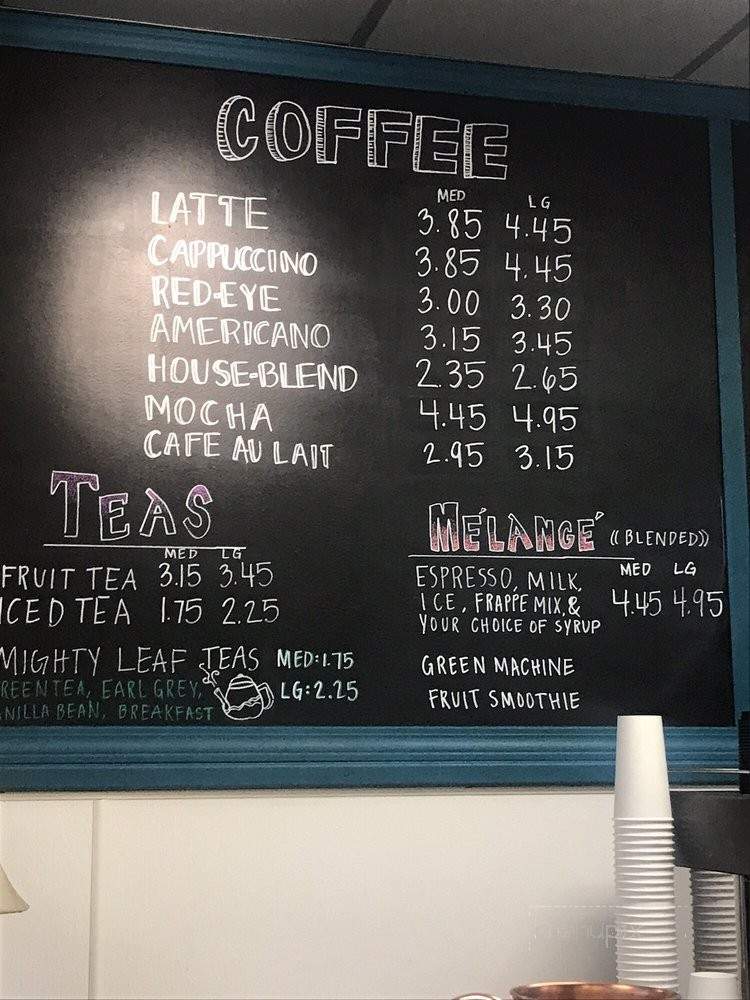 COFFEE
MED LG
LATTE 3.85 4.45
CAPPUCCINO 3.85 4.45
RED-EYE 3.00 3.30
AMERICANO 3.15 3.45
HOUSE-BLEND 2.35 2.65
MOCHA 4.45 4.95
CAFE AU LAIT 2.95 3.15
TEAS
MED LG
FRUIT TEA 3.15 3.45
ICED TEA 1.75 2.25
MIGHTY LEAF TEAS MED:1.75
REEN TEA, EARL GREY, LG:2.25
ANILLA BEAN, BREAKFAST
MÉLANGÉ ((BLENDED))
MED LG
ESPRESSO, MILK,
ICE, FRAPPE MIX, & 4.45 4.95
YOUR CHOICE OF SYRUP
GREEN MACHINE
FRUIT SMOOTHIE